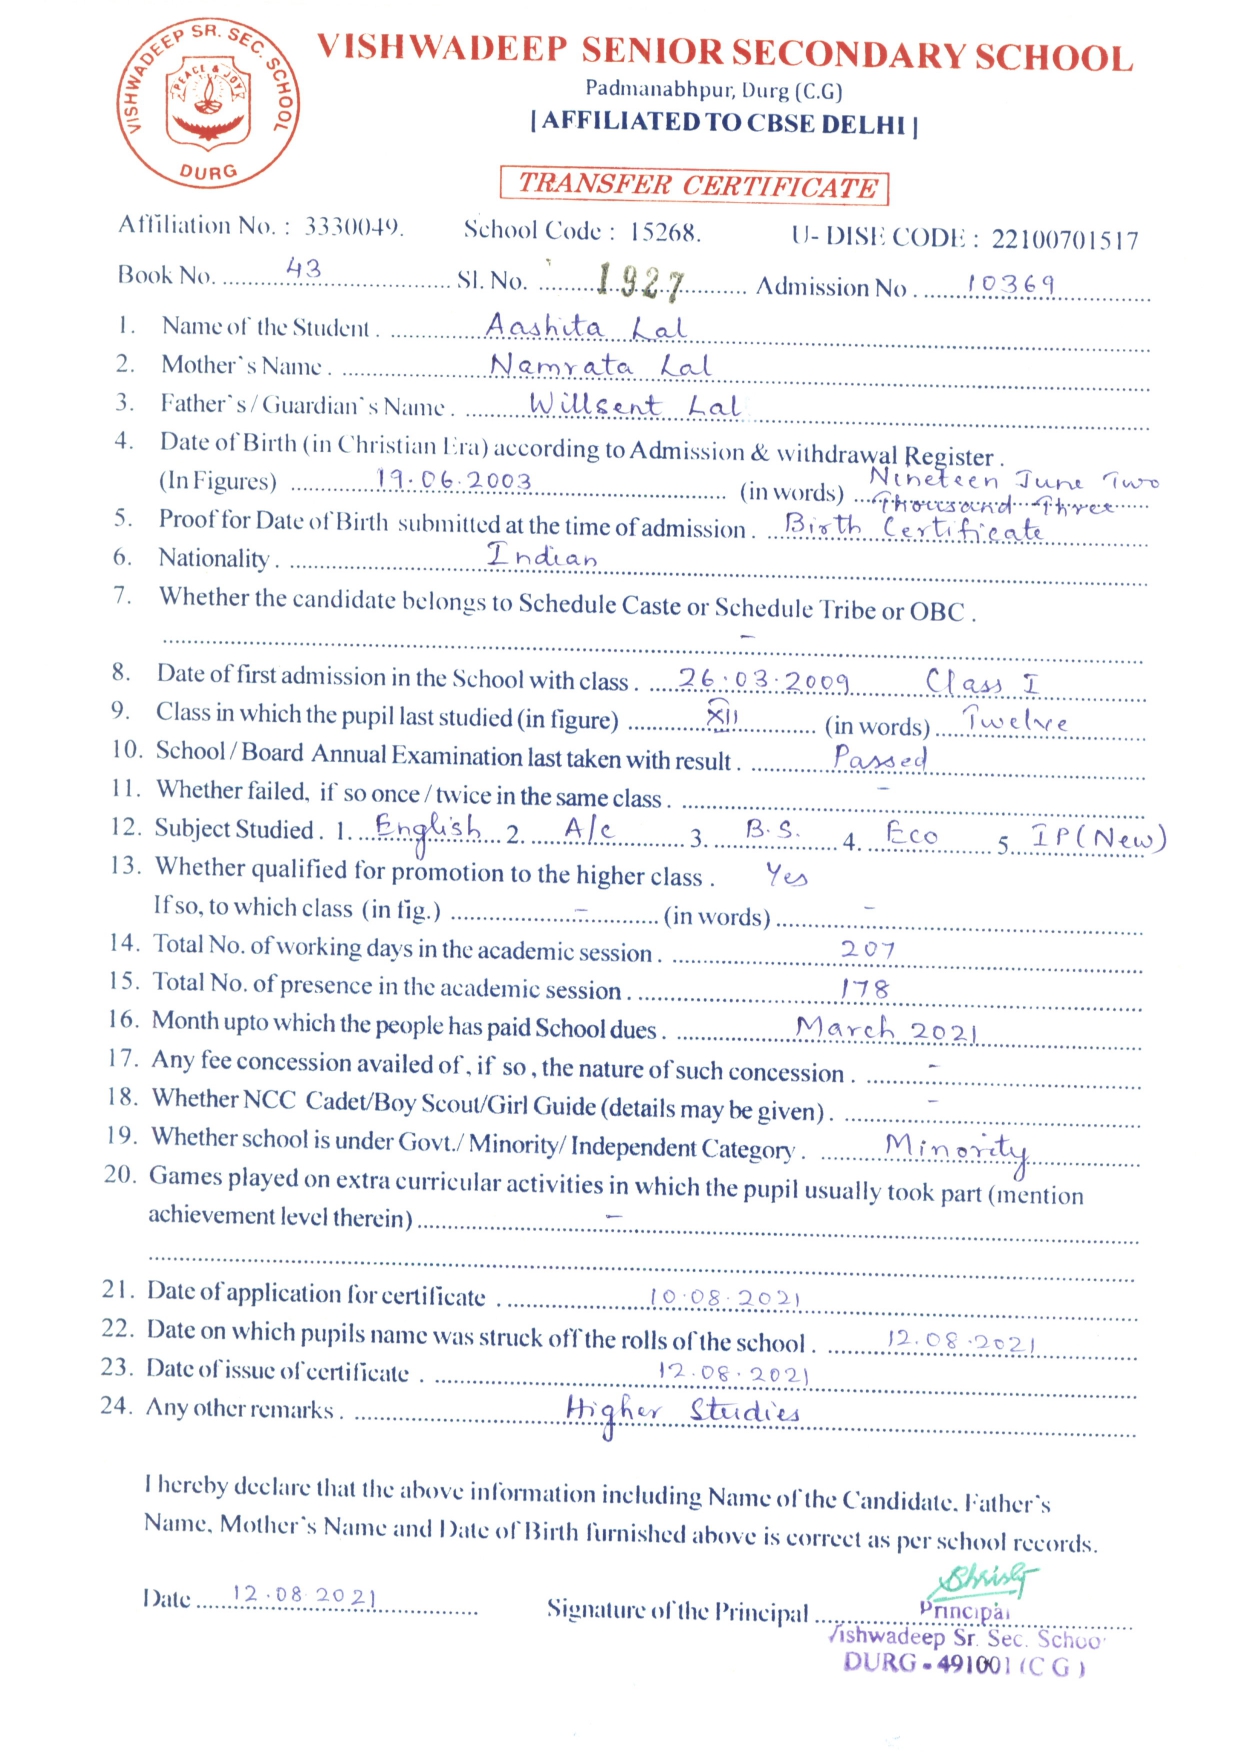 VISHWADEEP SR. SEC. SCHOOL
PEACE & JOY
DURG
VISHWADEEP SENIOR SECONDARY SCHOOL
Padmanabhpur, Durg (C.G)
| AFFILIATED TO CBSE DELHI |
TRANSFER CERTIFICATE
Affiliation No. : 3330049. School Code : 15268. U- DISE CODE : 22100701517
Book No. 43 Sl. No. 1927 Admission No. 10369
1. Name of the Student. Aashita Lal
2. Mother`s Name. Namrata Lal
3. Father`s/ Guardian`s Name. Willsent Lal
4. Date of Birth (in Christian Era) according to Admission & withdrawal Register.
(In Figures) 19.06.2003 (in words) Nineteen June Two
Thousand Three
5. Proof for Date of Birth submitted at the time of admission. Birth Certificate
6. Nationality. Indian
7. Whether the candidate belongs to Schedule Caste or Schedule Tribe or OBC.
-
8. Date of first admission in the School with class. 26.03.2009 Class I
9. Class in which the pupil last studied (in figure) XII (in words) Twelve
10. School / Board Annual Examination last taken with result. Passed
11. Whether failed, if so once / twice in the same class. -
12. Subject Studied. 1. English 2. A/c 3. B.S. 4. Eco 5. IP (New)
13. Whether qualified for promotion to the higher class. Yes
If so, to which class (in fig.) - (in words) -
14. Total No. of working days in the academic session. 207
15. Total No. of presence in the academic session. 178
16. Month upto which the people has paid School dues. March 2021
17. Any fee concession availed of, if so, the nature of such concession. -
18. Whether NCC Cadet/Boy Scout/Girl Guide (details may be given). -
19. Whether school is under Govt./ Minority/ Independent Category. Minority
20. Games played on extra curricular activities in which the pupil usually took part (mention
achievement level therein) -
21. Date of application for certificate. 10.08.2021
22. Date on which pupils name was struck off the rolls of the school. 12.08.2021
23. Date of issue of certificate. 12.08.2021
24. Any other remarks. Higher Studies
I hereby declare that the above information including Name of the Candidate, Father`s
Name, Mother`s Name and Date of Birth furnished above is correct as per school records.
Date 12.08.2021 Signature of the Principal
Principal
Vishwadeep Sr. Sec. School
DURG - 491001 (C G)